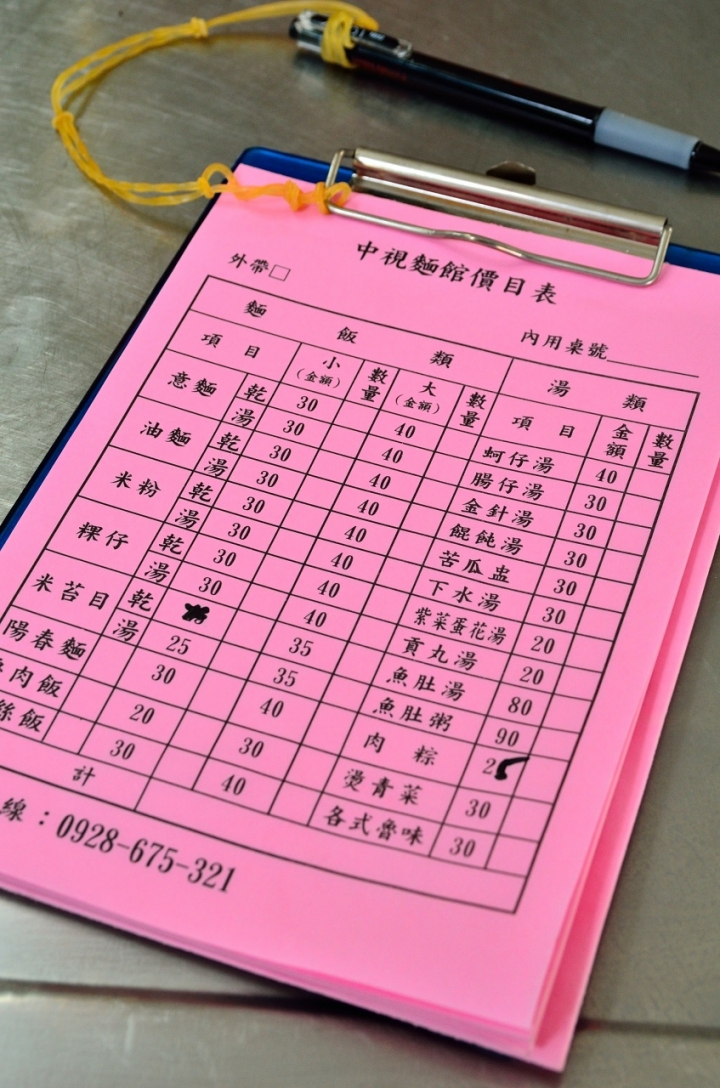 中視麵館價目表
外帶□
內用桌號
麵飯類 湯類
項目 小(金額) 數量 大(金額) 數量 項目 金額 數量
意麵 乾 30 40 蚵仔湯 40
湯 30 40 腸仔湯 30
油麵 乾 30 40 金針湯 30
湯 30 40 餛飩湯 30
米粉 乾 30 40 苦瓜盅 30
湯 30 40 下水湯 30
粿仔 乾 30 40 紫菜蛋花湯 20
湯 30 40 貢丸湯 20
米苔目 乾 35 魚肚湯 80
湯 25 35 魚肚粥 90
陽春麵 30 40 肉粽
肉飯 20 30 燙青菜 30
絲飯 30 40 各式魯味 30
計
線：0928-675-321